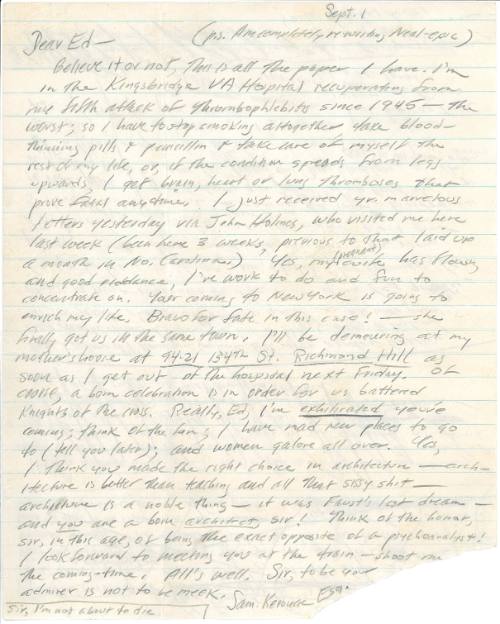 Sept. 1
Dear Ed— (p.s. Am completely rewriting Neal-epic)
Believe it or not, this is all the paper I have. I'm
in the Kingsbridge VA Hospital recuperating from
my fifth attack of thrombophlebitis since 1945 — the
worst; so I have to stop smoking altogether, take blood-
thinning pills & penicillin & take care of myself the
rest of my life, or, if the condition spreads from legs
upwards, I get brain, heart or lung thromboses that
prove fatal anytime. I just received yr. marvelous
letters yesterday via John Holmes, who visited me here
last week (been here 3 weeks, previous to that laid up
a month in No. Carolina.) Yes, my (pregnant) wife has flown,
and good riddance, I've work to do and fun to
concentrate on. Your coming to New York is going to
enrich my life. Bravo for fate in this case! — she
finally got us in the same town. I'll be demeuring at my
mother's house at 94-21 134th St. Richmond Hill as
soon as I get out of the hospital next Friday. Of
course, a born celebration is in order for us battered
Knights of the cross. Really, Ed, I'm exhilirated you're
coming; think of the fun; I have mad new places to go
to (tell you later); and women galore all over. Yes,
I think you made the right choice in architecture — arch-
itecture is better than teaching and all that sissy shit —
architecture is a noble thing — it was Faust's last dream —
and you are a born architect, sir! Think of the honor,
sir, in this age, of being the exact opposite of a psychoanalyst!
I look forward to meeting you at the train — shoot me
the coming-time. All's well. Sir, to be your
admirer is not to be meek.
Sam. Kerouac Esq.
Sir, I'm not about to die